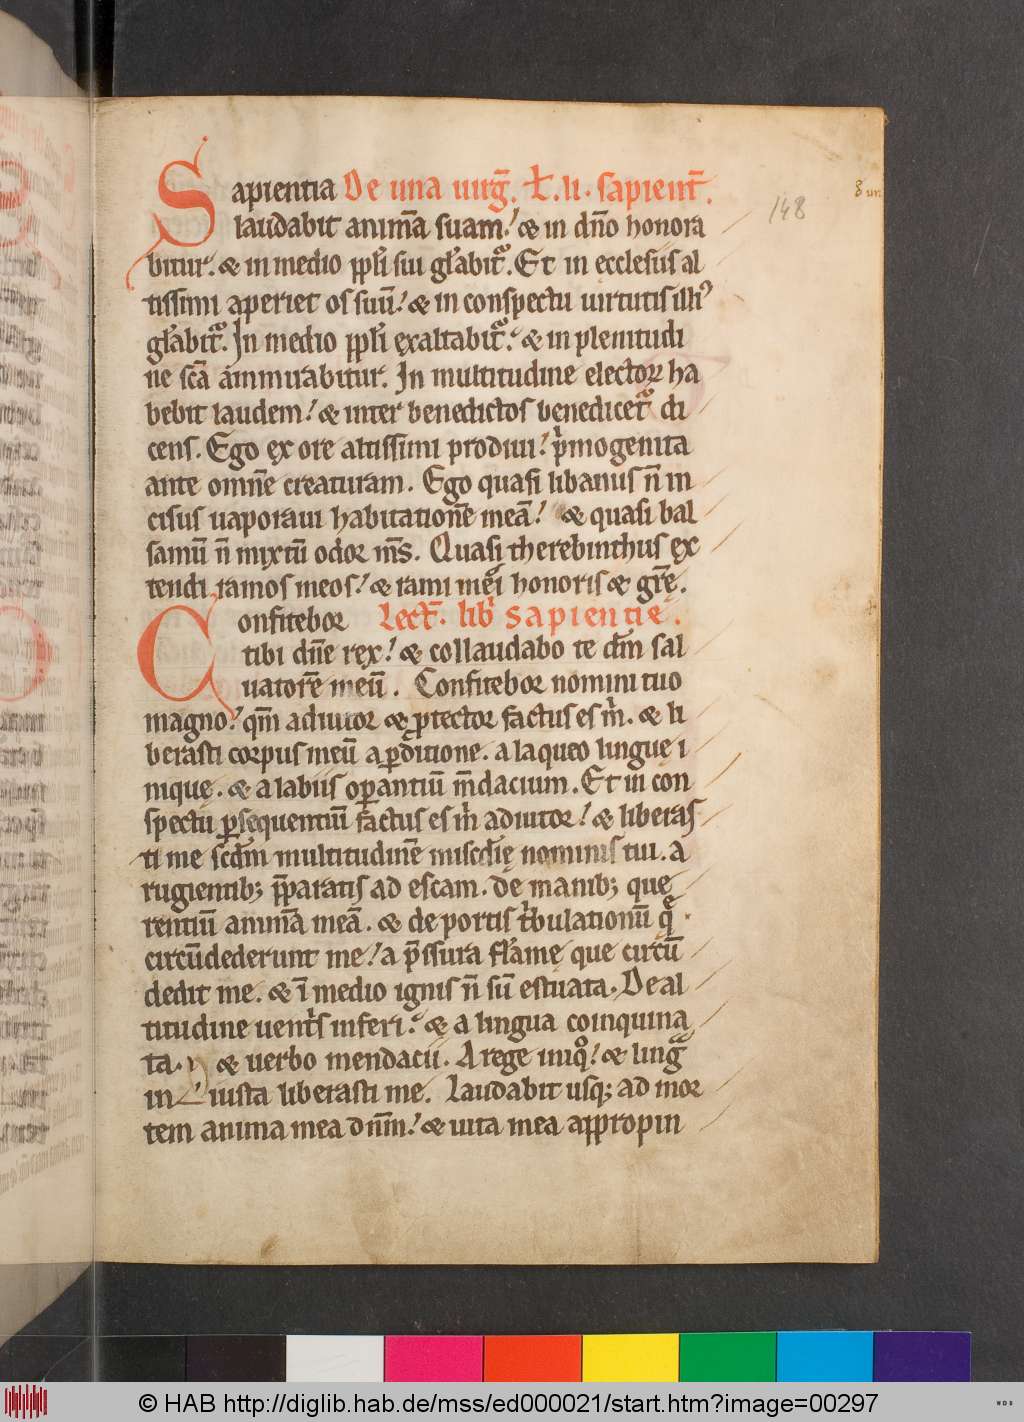 Sapientia De una uirg̅. t̅. li. sapient̅.
laudabit anima̅ suam. & in dn̅o honora
bitur. & in medio ppl̅i sui gl̅abit᷑. Et in ecclesiis al
tissimi aperiet os suu̅. & in conspectu uirtutis illi᷒
gl̅abit᷑. In medio ppl̅i exaltabit᷑. & in plenitudi
ne sc̅a ammirabitur. In multitudine electoꝝ ha
bebit laudem. & inter benedictos benedicet᷑ di
cens. Ego ex ore altissimi prodiui. pͥmogenita
ante omne̅ creaturam. Ego quasi libanus n̅ in
cisus uaporaui habitatione̅ mea̅. & quasi bal
samu̅ n̅ mixtu̅ odor m̅s. Quasi therebinthus ex
tendi ramos meos. & rami mei honoris & gr̅e.
Confitebor Lect̅. lib̅ sapientie.
tibi dn̅e rex. & collaudabo te dm̅ sal
uatore̅ meu̅. Confitebor nomini tuo
magno. qm̅ adiutor & ꝓtector factus es mͥ. & li
berasti corpus meu̅ a ꝑditione. a laqueo lingue i
nique. & a labiis oꝑantiu̅ m̅dacium. Et in con
spectu ꝑsequentiu̅ factus es mͥ adiutor. & liberas
ti me scd̅m multitudine̅ miscdi̅ę nominis tui. a
rugientib; p̅paratis ad escam. de manib; quę
rentiu̅ anima̅ mea̅. & de portis tͥbulationu̅ q̅
circu̅dederunt me. a p̅ssura fla̅mę que circu̅
dedit me. & i̅ medio ignis n̅ su̅ estuata. De al
titudine uentͥs inferi. & a lingua coinquina
ta. & uerbo mendacii. A rege iniqͦ. & ling̅
in iusta liberasti me. Laudabit usq; ad mor
tem anima mea dn̅m. & uita mea appropin
148
8 un
© HAB http://diglib.hab.de/mss/ed000021/start.htm?image=00297